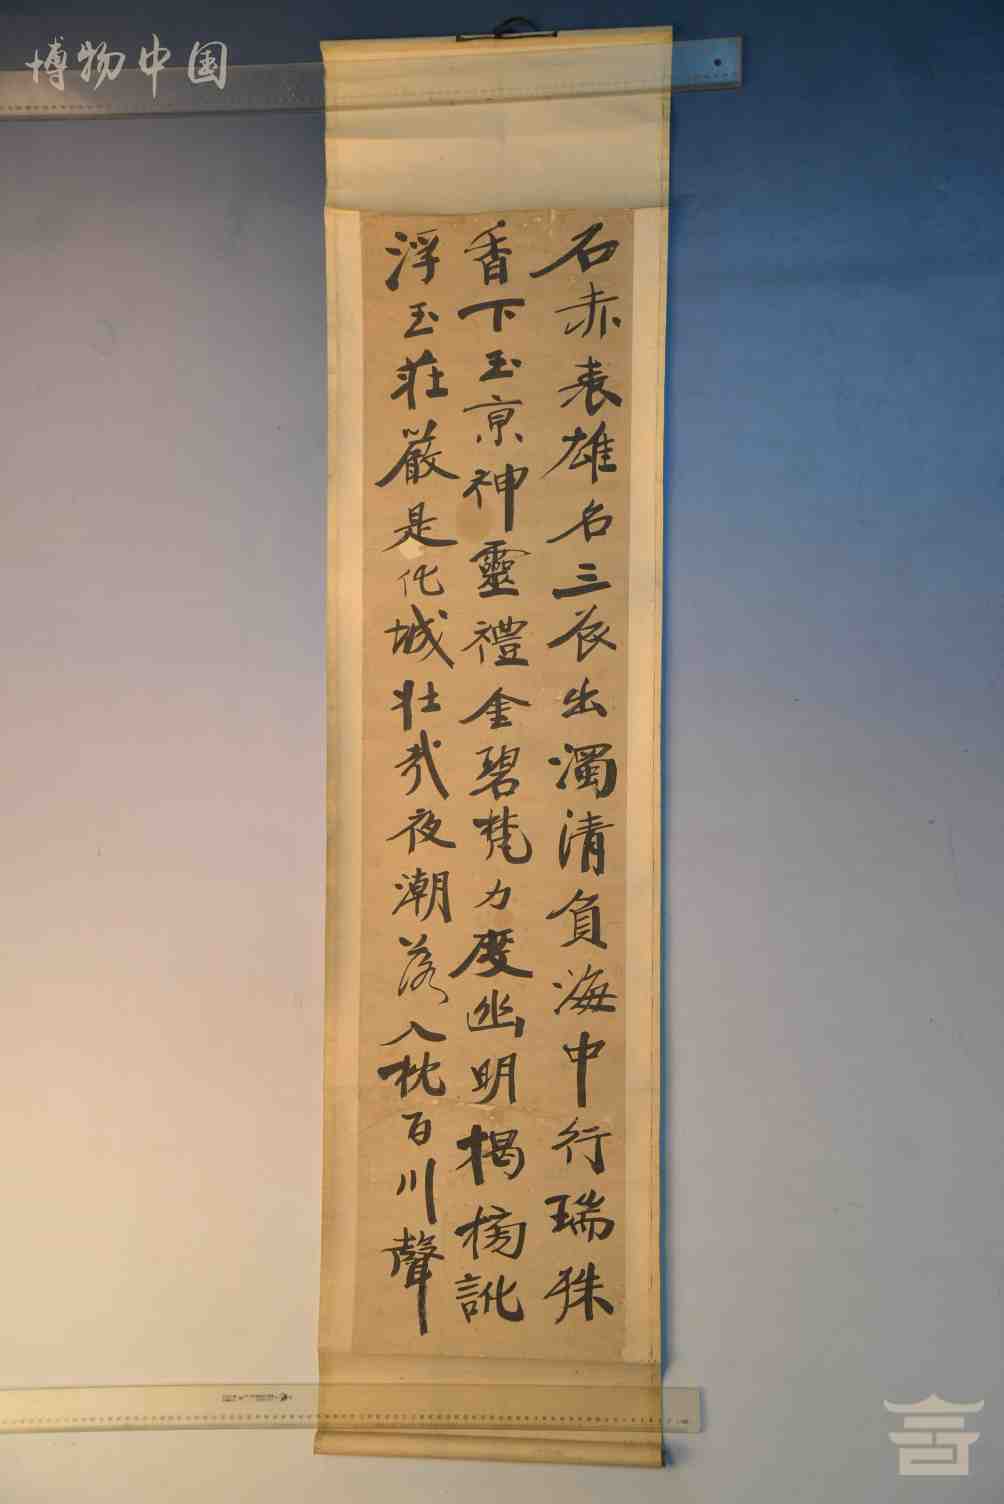 博物中国
石赤表雄名三辰出濁清負海中行瑞殊
香下玉亰神靈禮金碧梵力度幽明揭榜訛
浮玉莊嚴是化城壯哉夜潮落入枕百川聲